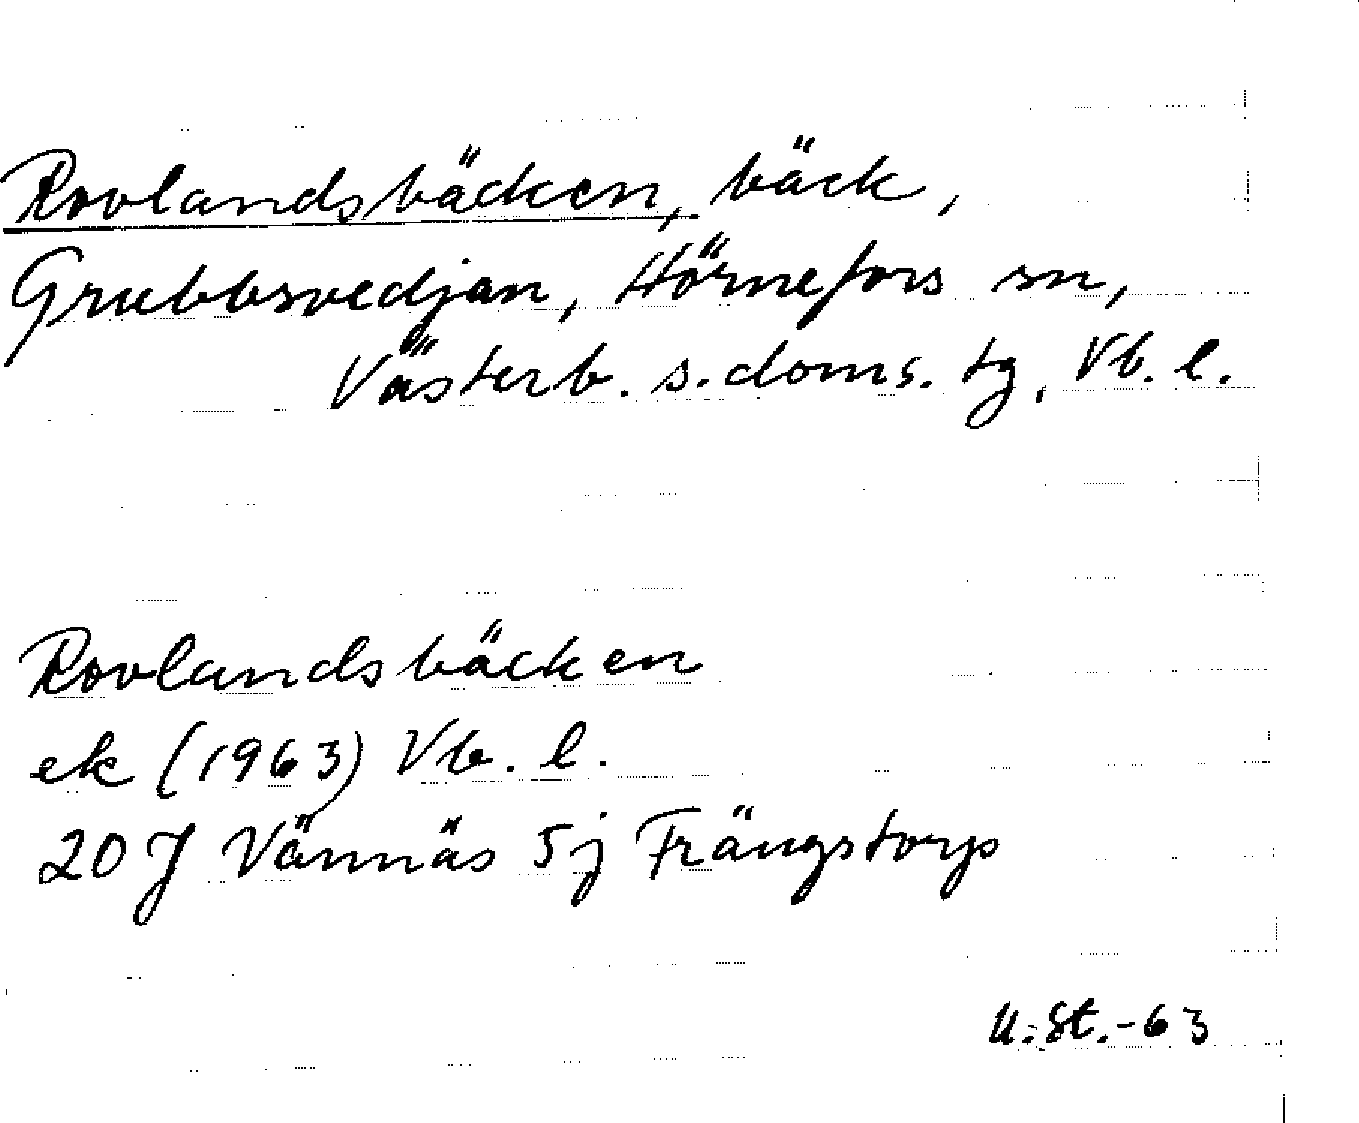 Rovlandsbäcken, bäck,
Grubbsvedjan, Hörnefors sn,
Västerb. s. doms. tg, Vb. l.
Rovlandsbäcken
ek (1963) Vb. l.
20 J Vännäs 5 j Frängstorp
U. St. -63